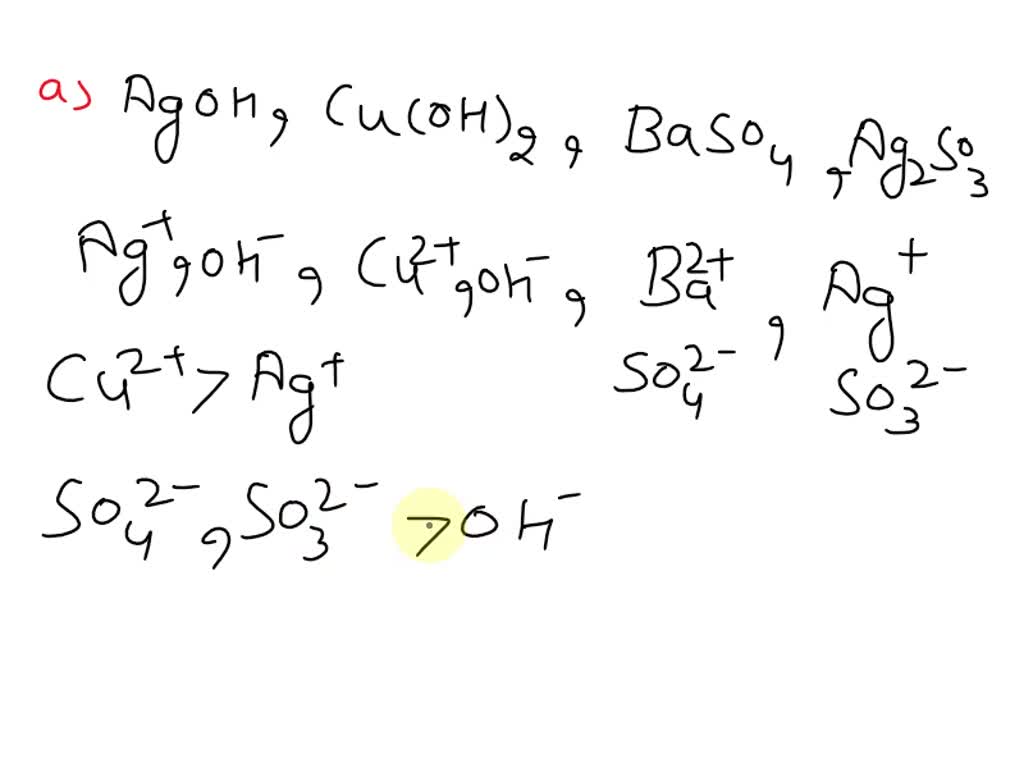 a) AgOH, Cu(OH)₂, BaSO₄, Ag₂SO₃
Ag⁺, OH⁻, Cu²⁺, OH⁻, Ba²⁺, Ag⁺
SO₄²⁻ SO₃²⁻
Cu²⁺ > Ag⁺
SO₄²⁻, SO₃²⁻ > OH⁻